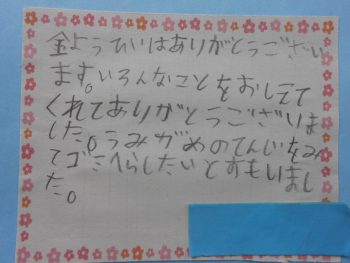 金ようびいはありがとうござい
ます。いろんなことをおしえて
くれてありがとうございま
した。うみがめのてんじをみ
てゴミへらしたいとおもいまし
た。